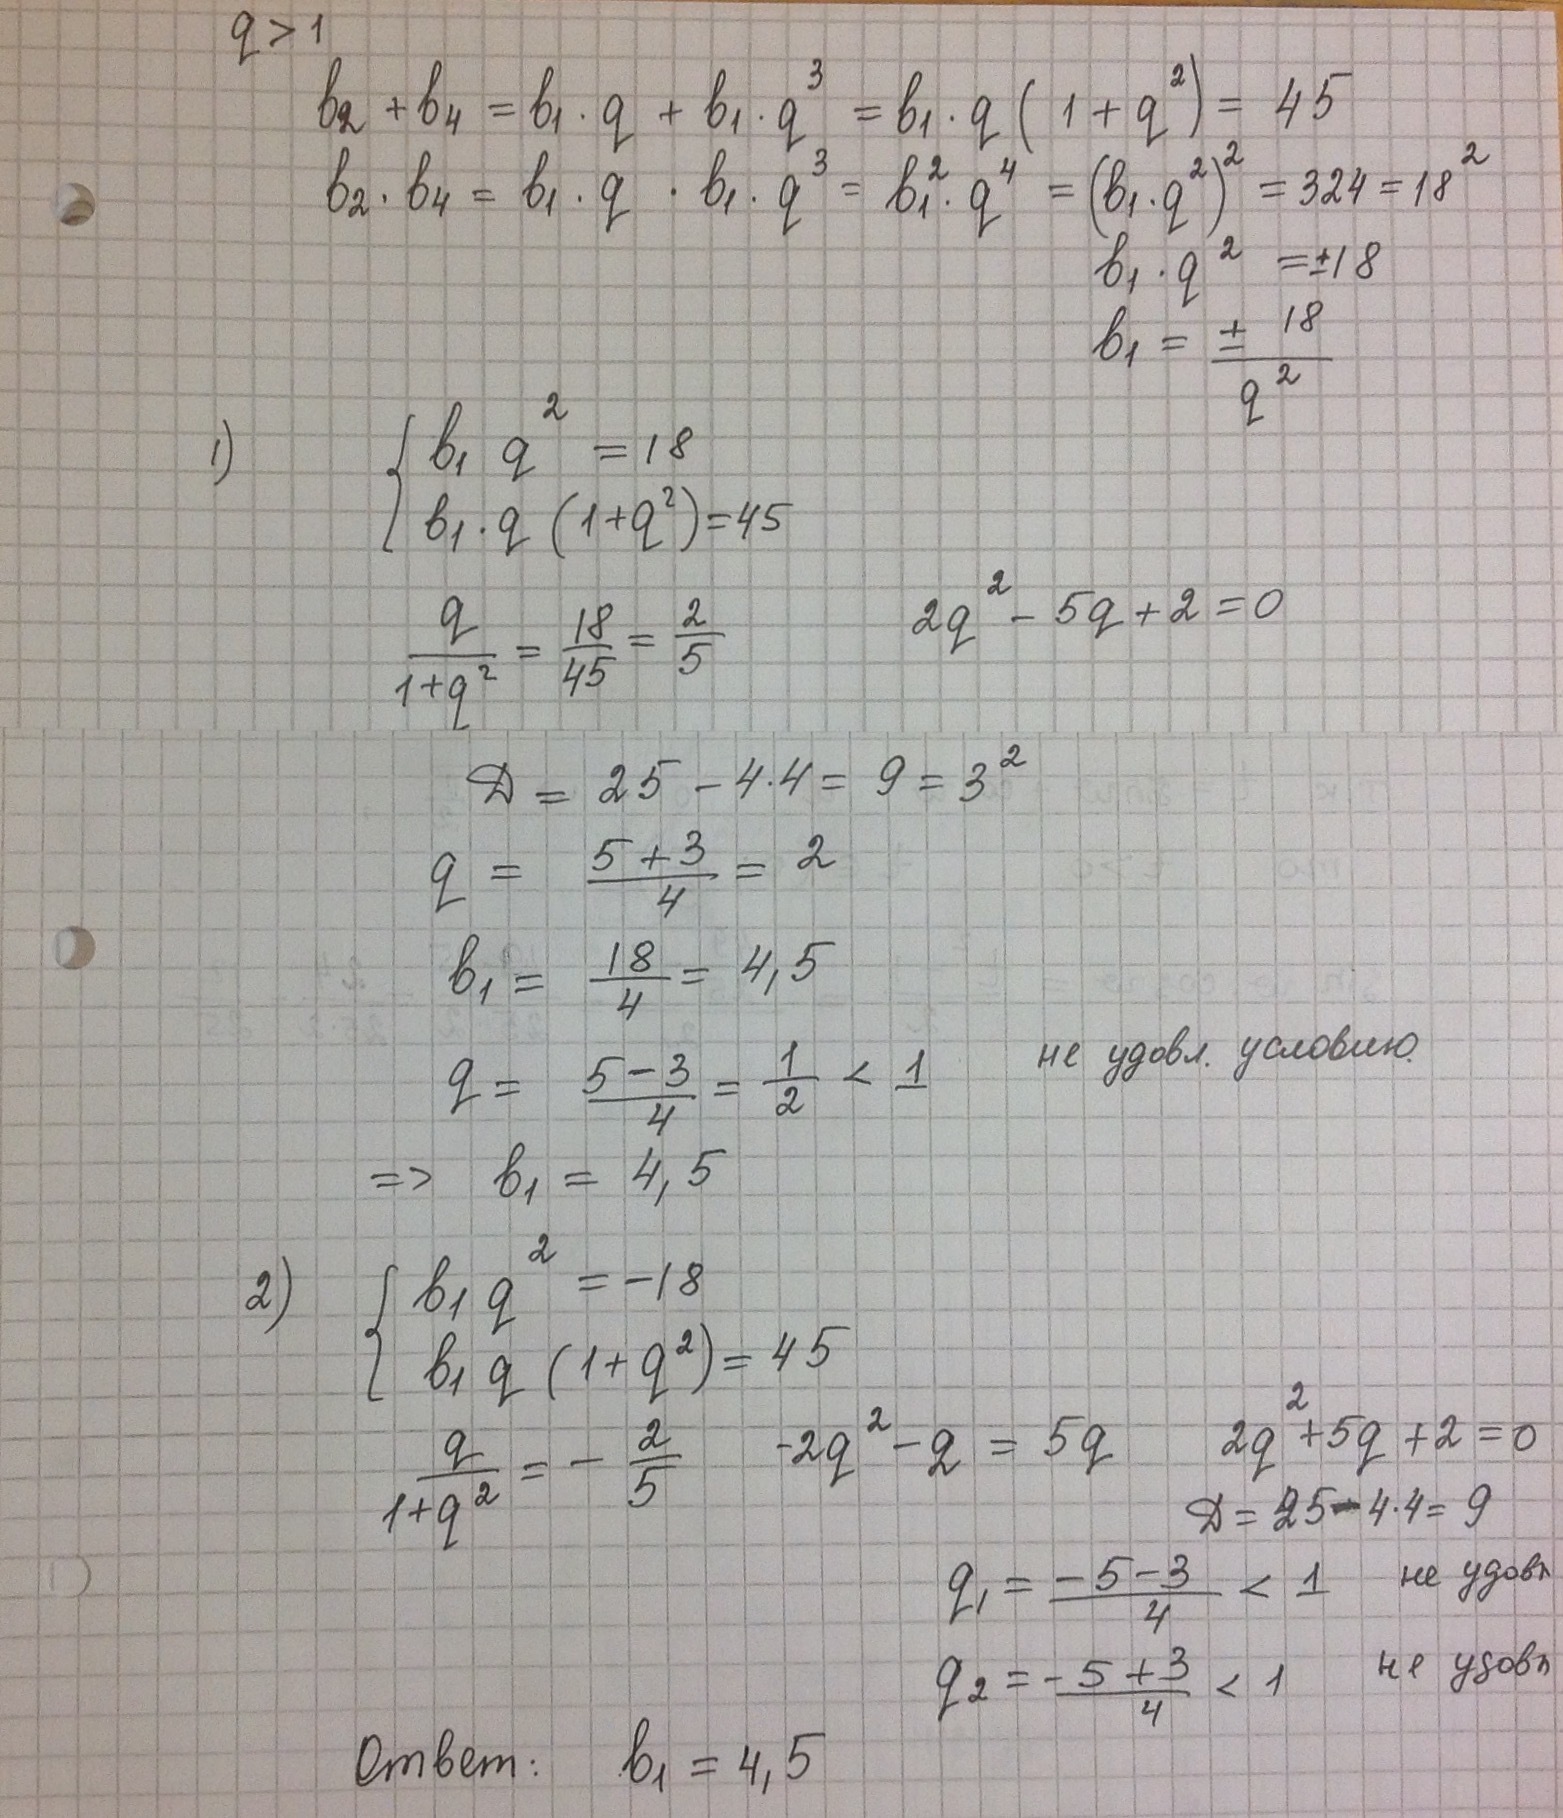 q > 1
b₂ + b₄ = b₁ · q + b₁ · q³ = b₁ · q ( 1 + q² ) = 45
b₂ · b₄ = b₁ · q · b₁ · q³ = b₁² · q⁴ = (b₁ · q²)² = 324 = 18²
b₁ · q² = ±18
b₁ = ± 18 / q²
1) { b₁ q² = 18
b₁ · q (1+q²) = 45
q / (1+q²) = 18/45 = 2/5 2q² - 5q + 2 = 0
Д = 25 - 4·4 = 9 = 3²
q = (5 + 3)/4 = 2
b₁ = 18/4 = 4,5
q = (5 - 3)/4 = 1/2 < 1 не удовл. условию.
=> b₁ = 4,5
2) { b₁ q² = -18
b₁ q (1 + q²) = 45
q / (1+q²) = - 2/5 -2q² - 2 = 5q 2q² + 5q + 2 = 0
Д = 25 - 4·4 = 9
q₁ = (-5-3)/4 < 1 не удовл
q₂ = (-5+3)/4 < 1 не удовл
Ответ: b₁ = 4,5